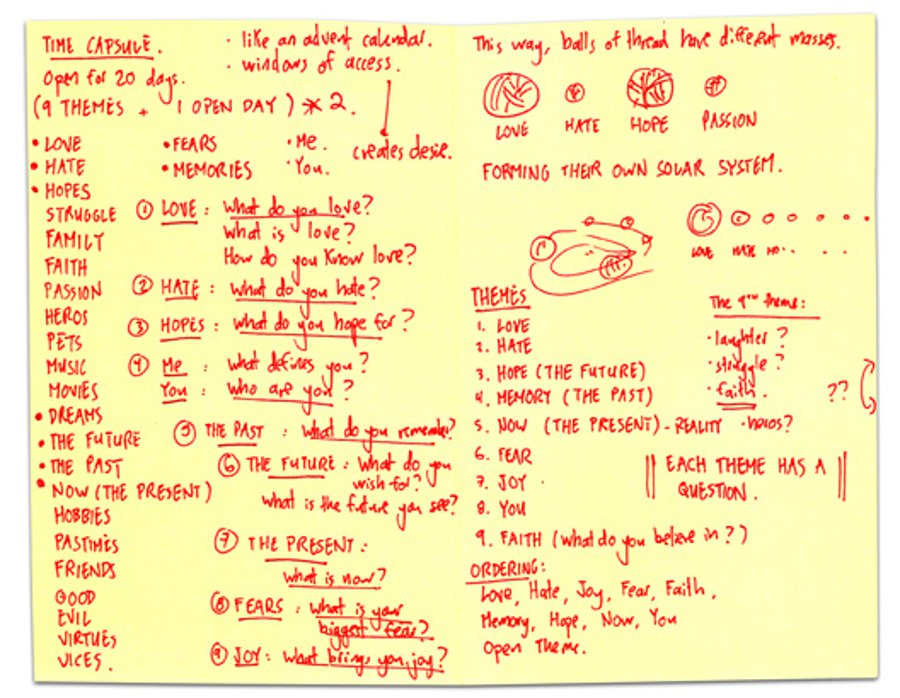 TIME CAPSULE.
· like an advent calendar.
· windows of access.
Open for 20 days.
(9 THEMES + 1 OPEN DAY) * 2.
creates desire.
• LOVE
• HATE
• HOPES
STRUGGLE
FAMILY
FAITH
PASSION
HEROS
PETS
MUSIC
MOVIES
• DREAMS
• THE FUTURE
• THE PAST
• NOW (THE PRESENT)
HOBBIES
PASTIMES
FRIENDS
GOOD
EVIL
VIRTUES
VICES.
• FEARS
• MEMORIES
· Me.
· You.
① LOVE: What do you love?
What is love?
How do you know love?
② HATE: What do you hate?
③ HOPES: What do you hope for?
④ Me: What defines you?
You: Who are you?
⑤ THE PAST: What do you remember?
⑥ THE FUTURE: What do you
wish for?
What is the future you see?
⑦ THE PRESENT:
What is now?
⑧ FEARS: What is your
biggest fear?
⑨ JOY: What brings you joy?
This way, balls of thread have different masses.
LOVE HATE HOPE PASSION
FORMING THEIR OWN SOLAR SYSTEM.
LOVE HATE HO·· . .
THEMES
1. LOVE
2. HATE
3. HOPE (THE FUTURE)
4. MEMORY (THE PAST)
5. NOW (THE PRESENT) - REALITY
6. FEAR
7. JOY
8. YOU
9. FAITH (what do you believe in?)
The 9TH theme:
· laughter?
· struggle?
· faith.
· heros?
??
EACH THEME HAS A
QUESTION.
ORDERING:
Love, Hate, Joy, Fear, Faith,
Memory, Hope, Now, You
Open Theme.